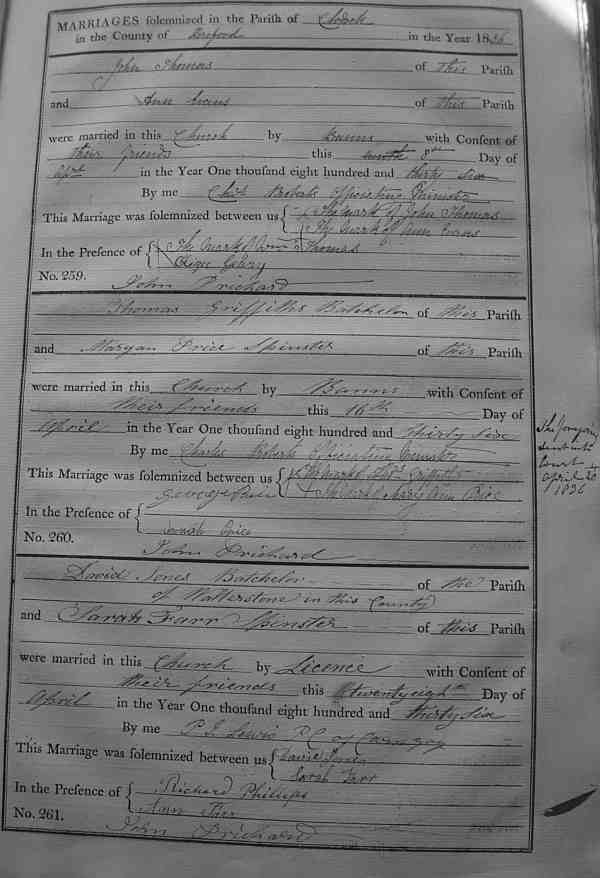 MARRIAGES solemnized in the Parish of
in the County of Hereford in the Year 1836
John Thomas of this Parish
and Ann Evans of this Parish
were married in this Church by Banns with Consent of
their friends this Day of
in the Year One thousand eight hundred and thirty six
By me Roberts Officiating Minister
This Marriage was solemnized between us The mark of John Thomas
The Mark of Ann Evans
In the Presence of The Mark of Thomas
No. 259.
John Prichard
Thomas Griffiths Batchelor of this Parish
and Maryan Price Spinster of this Parish
were married in this Church by Banns with Consent of
their friends this 16th Day of
April in the Year One thousand eight hundred and Thirty Six
By me Charles Roberts Officiating
This Marriage was solemnized between us The Mark of Thos. Griffiths
The Mark of Mary Ann Price
In the Presence of George
Price
No. 260.
John Prichard
April 20
1836
David Jones Batchelor of the Parish
of Walterstone in this County
and Sarah Farr Spinster of this Parish
were married in this Church by Licence with Consent of
their friends this twentyeighth Day of
April in the Year One thousand eight hundred and thirty six
By me Lewis P.C. of
This Marriage was solemnized between us David Jones
Sarah Farr
In the Presence of Richard Phillips
Ann Farr
No. 261.
John Prichard